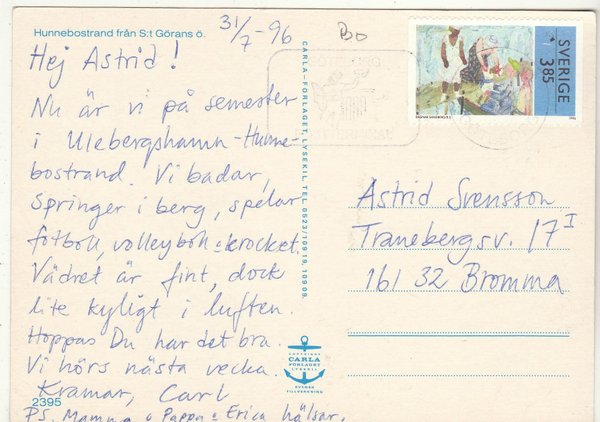 Hunnebostrand från S:t Görans ö.
31/7-96
Bo
Hej Astrid!
Nu är vi på semester
i Ulebergshamn-Hunne-
bostrand. Vi badar,
springer i berg, spelar
fotboll, volleyboll o krocket.
Vädret är fint, dock
lite kyligt i luften.
Hoppas Du har det bra.
Vi hörs nästa vecka.
Kramar, Carl
2395
PS. Mamma o Pappa o Erica hälsar,
CARLA-FÖRLAGET, LYSEKIL, TEL. 0523/10919, 10909.
COPYRIGHT
CARLA
FÖRLAGET
LYSEKIL
SVENSK
TILLVERKNING
SVERIGE
385
Astrid Svensson
Tranebergsv. 17 I
161 32 Bromma